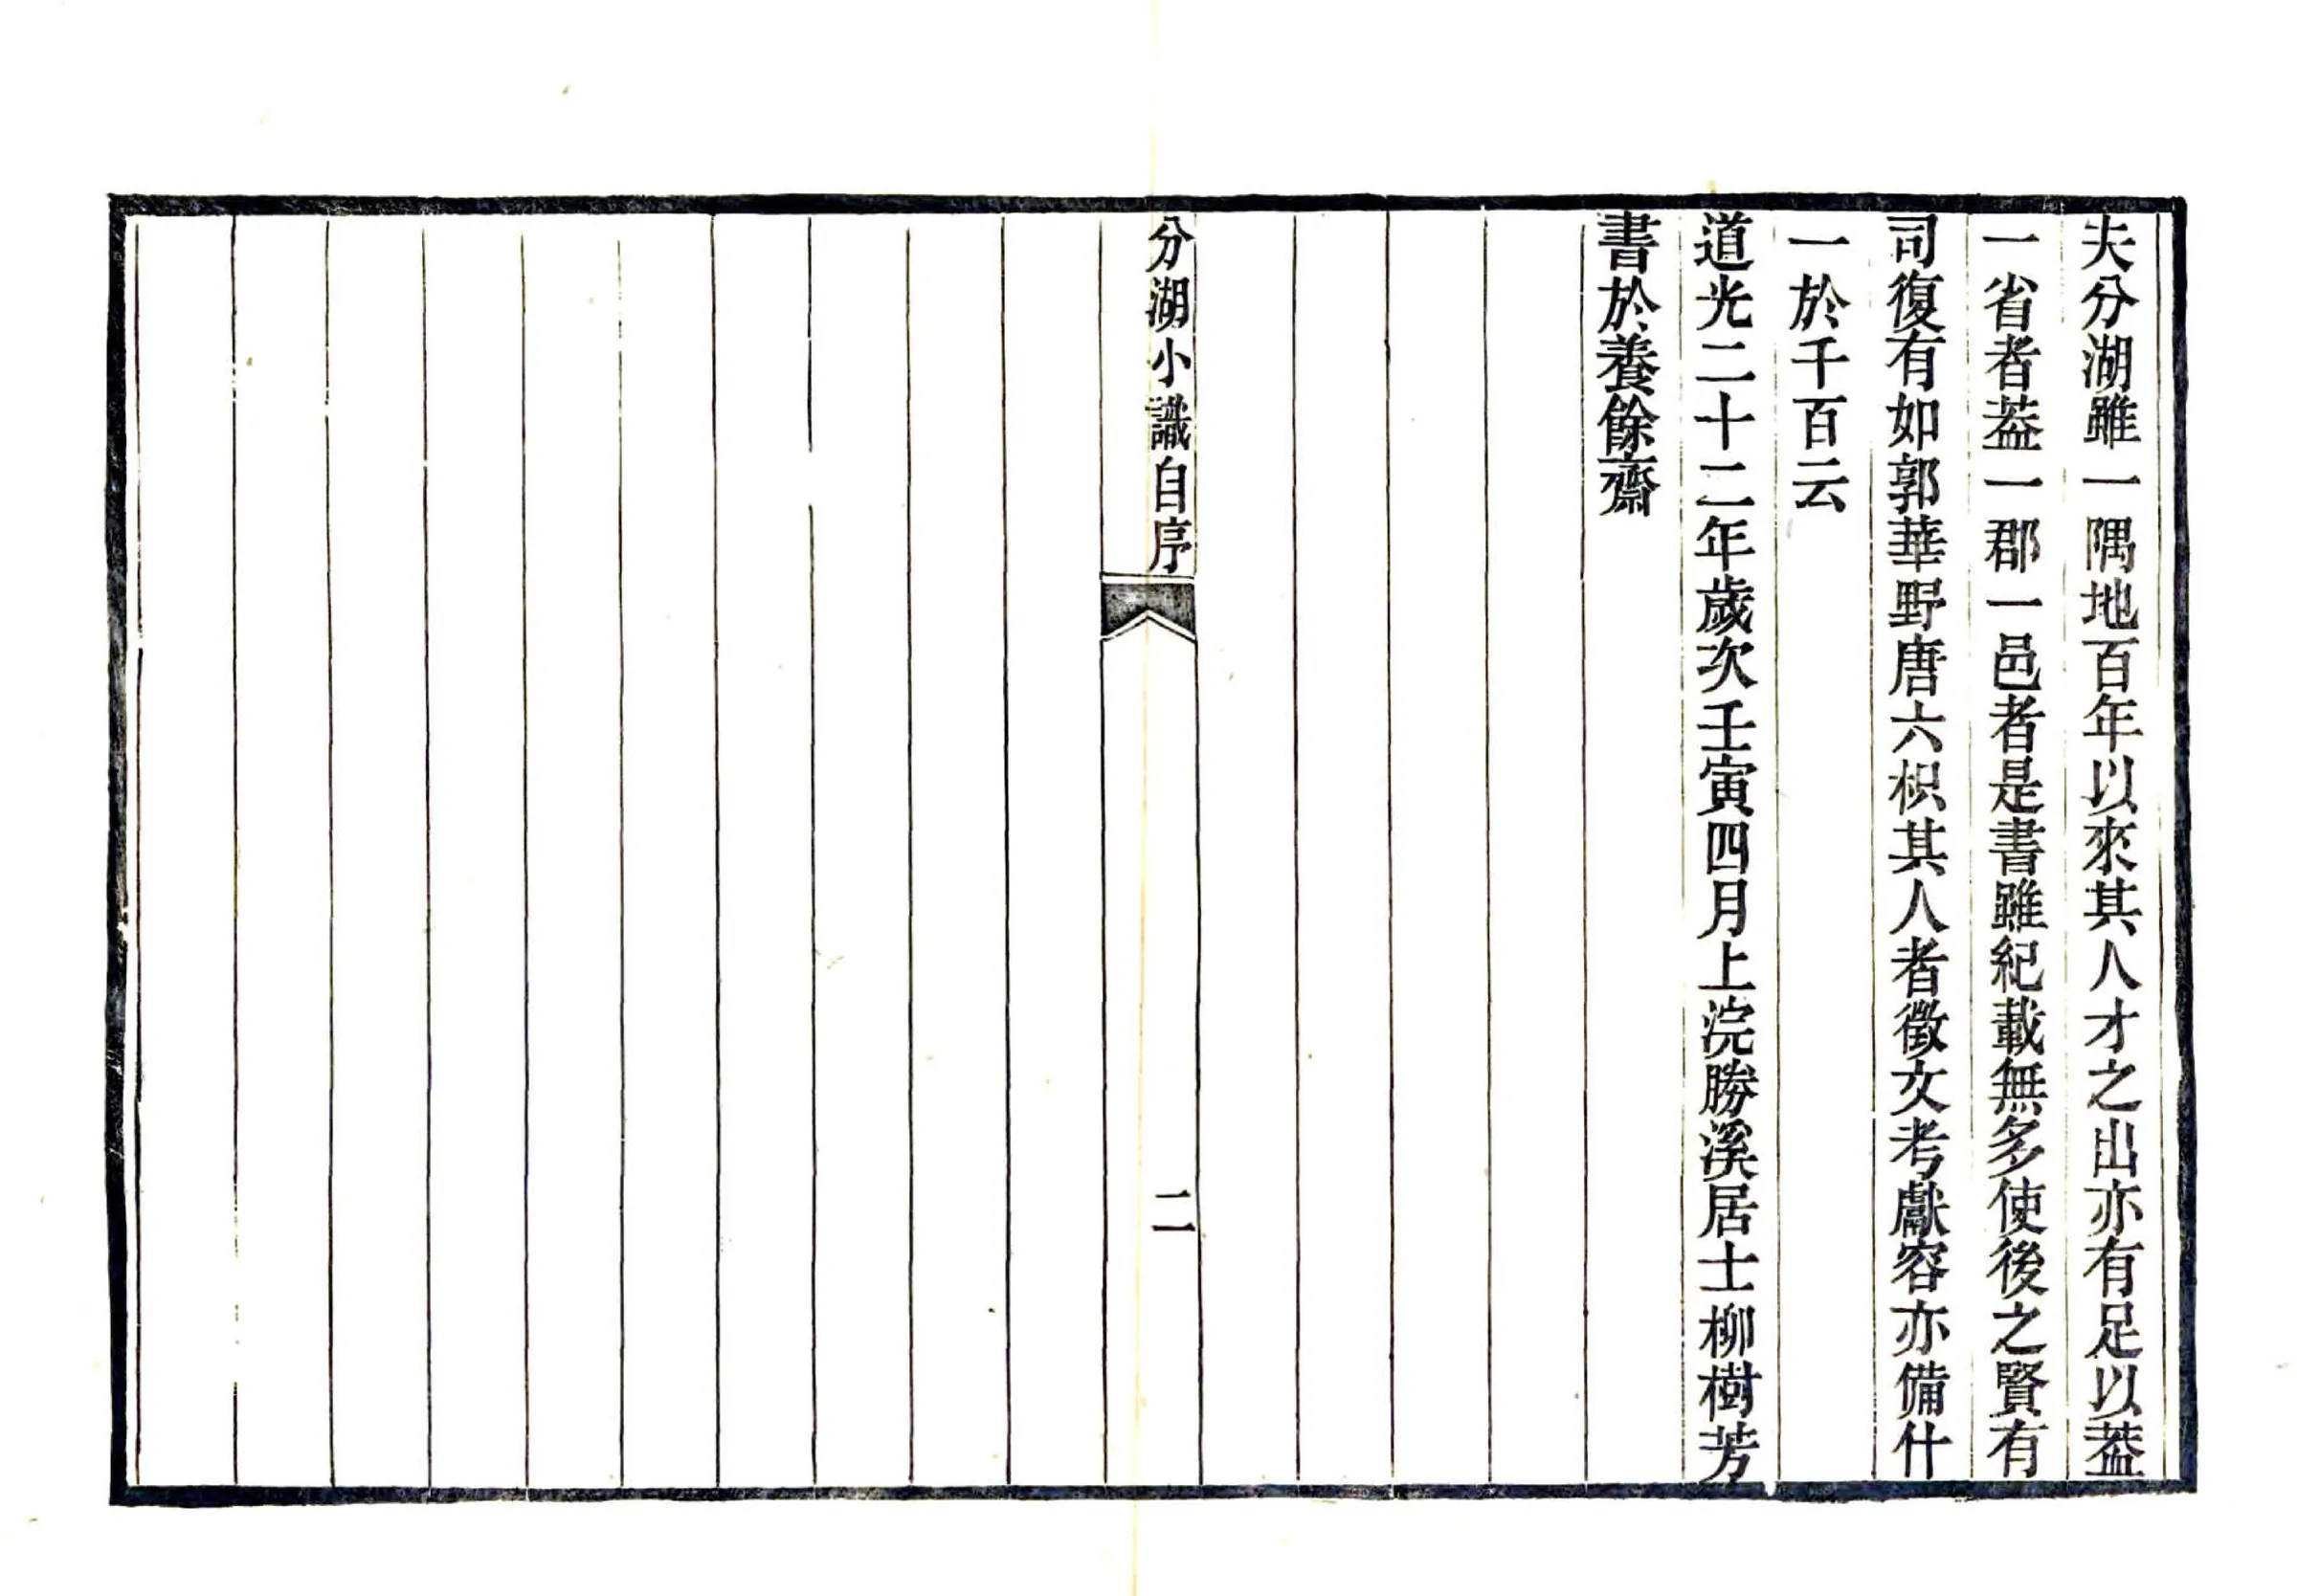 夫分湖雖一隅地百年以來其人才之出亦有足以葢
一省者葢一郡一邑者是書雖紀載無多使後之賢有
司復有如郭華野唐六枳其人者徵文考獻容亦備什
一於千百云
道光二十二年歲次壬寅四月上浣勝溪居士柳樹芳
書於養餘齋
分湖小識自序
二